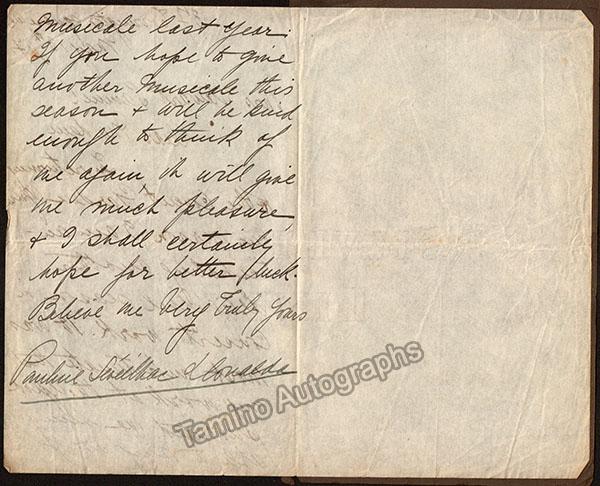 Musicale last year.
If you hope to give
another Musicale this
season + will be kind
enough to think of
me again it will give
me much pleasure,
+ I shall certainly
hope for better luck.
Believe me Very Truly Yours
Pauline Donalda
Tamino Autographs